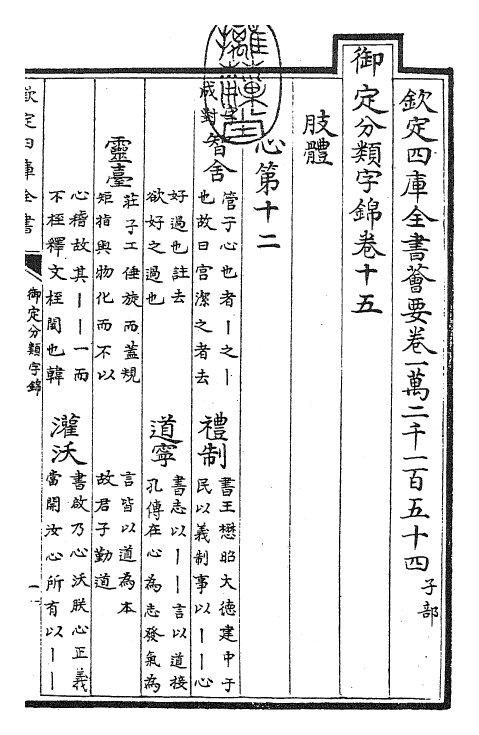 欽定四庫全書薈要卷一萬二千一百五十四 子部
御定分類字錦卷十五
肢體
心第十二
成對
智舍 管子心也者丨之丨
也故曰宫潔之者去
好過也註去
欲好之過也
禮制 書王懋昭大德建中于
民以義制事以丨丨心
道寧 書志以丨丨言以道接
孔傳在心為志發氣為
言皆以道為本
故君子勤道
靈臺 莊子工倕旋而蓋規
矩指與物化而不以
心稽故其丨丨一而
不桎釋文桎閡也韓
灌沃 書啟乃心沃朕心正義
當開汝心所有以丨丨
欽定四庫全書
御定分類字錦
一